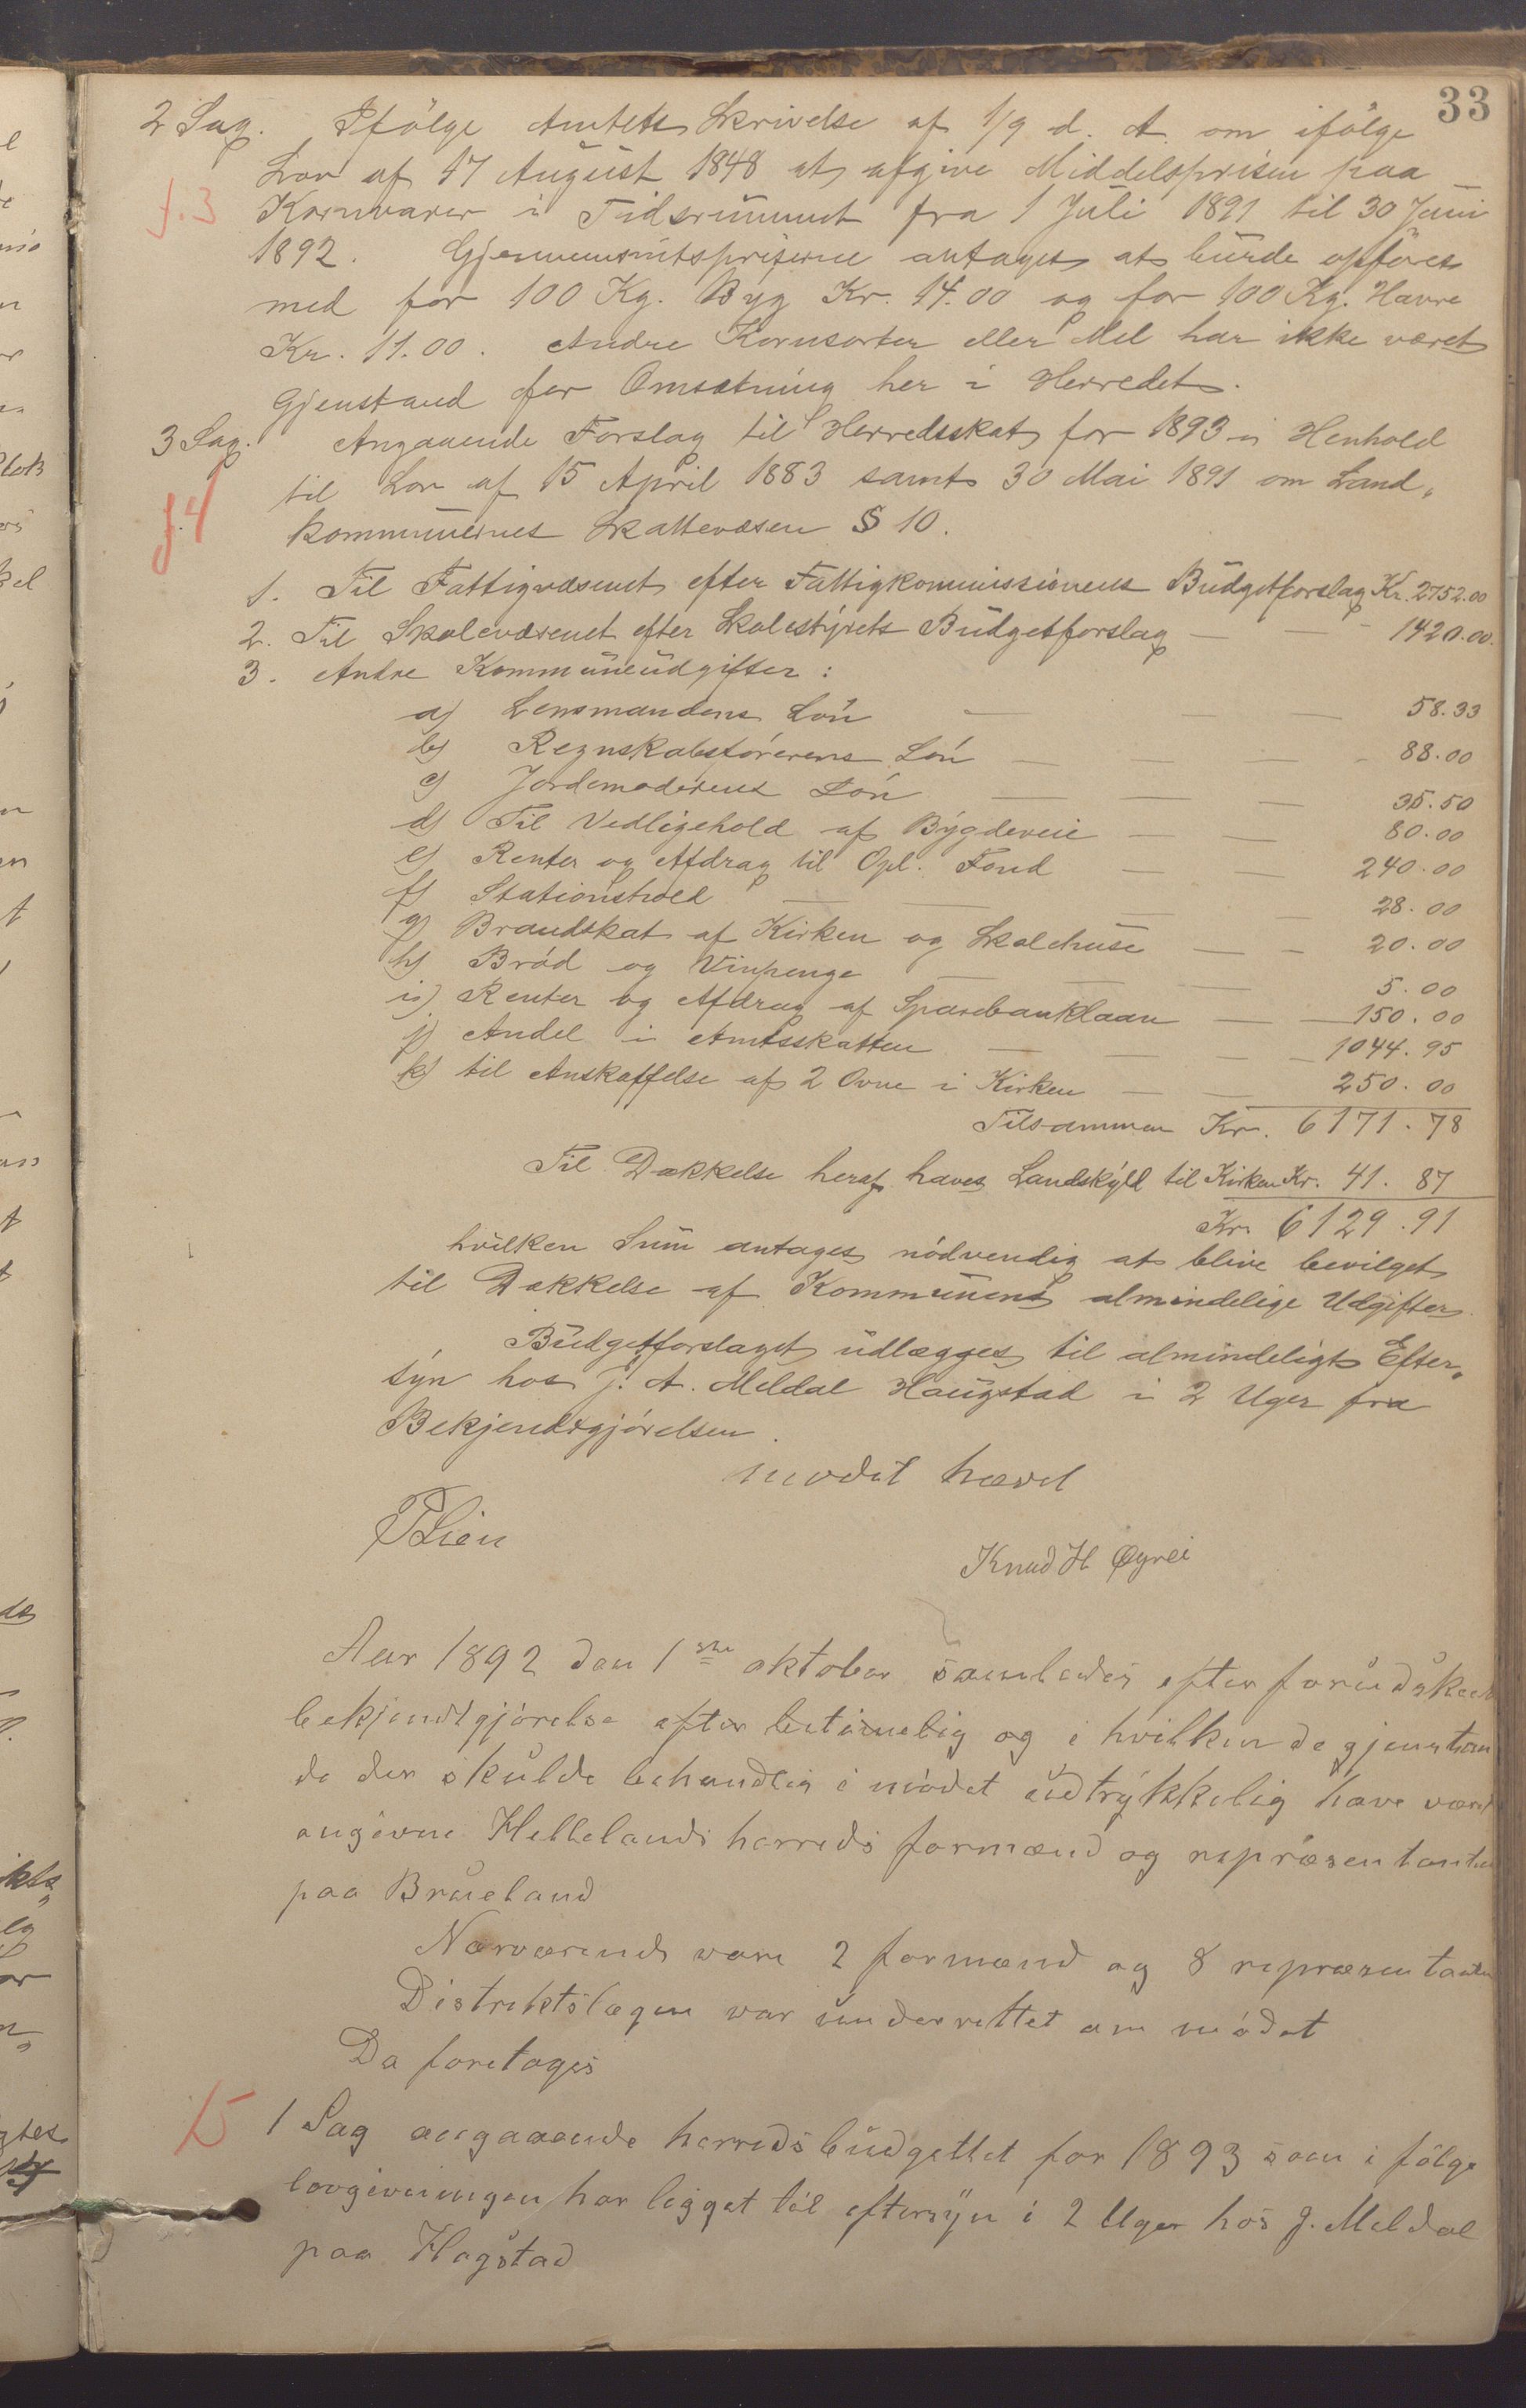 33
2 Sag. Ifølge Amtets Skrivelse af 1/9 d. A. om ifølge
Lov af 17 August 1848 at afgive Middelsprisen paa
f. 3 Kornvarer i Tidsrummet fra 1 Juli 1891 til 30 Juni
1892. Gjennemsnitspriserne antages at burde opføres
med for 100 Kg. Byg Kr. 14.00 og for 100 Kg. Havre
Kr. 11.00. Andre Kornsorter eller Mel har ikke været
Gjenstand for Omsætning her i Herredet.
3 Sag. Angaaende Forslag til Herredsskat for 1893 i Henhold
til Lov af 15 April 1883 samt 30 Mai 1891 om Land„
f. 4 kommunernes Skattevæsen § 10.
1. Til Fattigvæsenet efter Fattigkommissionens Budgetforslag Kr. 2752.00
2. Til Skolevæsenet efter Skolestyrets Budgetforslag — — - 1420.00.
3. Andre Kommuneudgifter:
a) Lensmandens Løn — — — 58.33
b) Regnskabsførerens Løn — — — - 88.00
c) Jordemoderens Løn — — — 35.50
d) Til Vedligehold af Bygdeveie — — 80.00
e) Renter og Afdrag til Opl. Fond — — 240.00
f) Stationshold — — — — 28.00
g) Brandskat af Kirken og Skolehuse — — 20.00
h) Brød og Vinpenge — — — 5.00
i) Renter og Afdrag af Sparebanklaan — — 150.00
j) Andel i Amtsskatten — — — — 1044.95
k) til Anskaffelse af 2 Ovne i Kirken — — 250.00
Tilsammen Kr. 6171.78
Til Dækkelse heraf haves Landskyld til Kirken Kr. 41.87
Kr. 6129.91
hvilken Sum antages nødvendig at blive bevilget
til Dækkelse af Kommunens almindelige Udgifter.
Budgetforslaget udlægges til almindeligt Efter„
syn hos J. A. Meldal Haugstad i 2 Uger fra
Bekjendtgjørelsen.
mødet hævet
Lien
Knud H Øgrei
Aar 1892 den 1ste oktober samledes efter forudskeet
bekjendtgjørelse efter betimelig og i hvilken de gjenstan
de der skulde behandles i mødet udtrykkelig have været
angivne Hellelands herreds formænd og repræsentanter
paa Brueland
Nærværende vare 2 formænd og 8 repræsentanter
Distriktslægen var underrettet om mødet
Da foretoges
5 1 Sag angaaende herredsbudgettet for 1893 som i følge
lovgivningen har ligget til eftersyn i 2 Uger hos J. Meldal
paa Hagstad